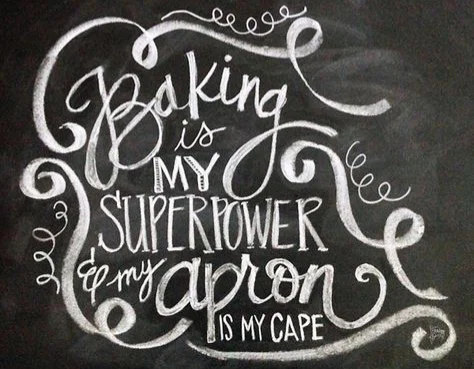 Baking
is
MY
SUPERPOWER
& my apron
IS MY CAPE